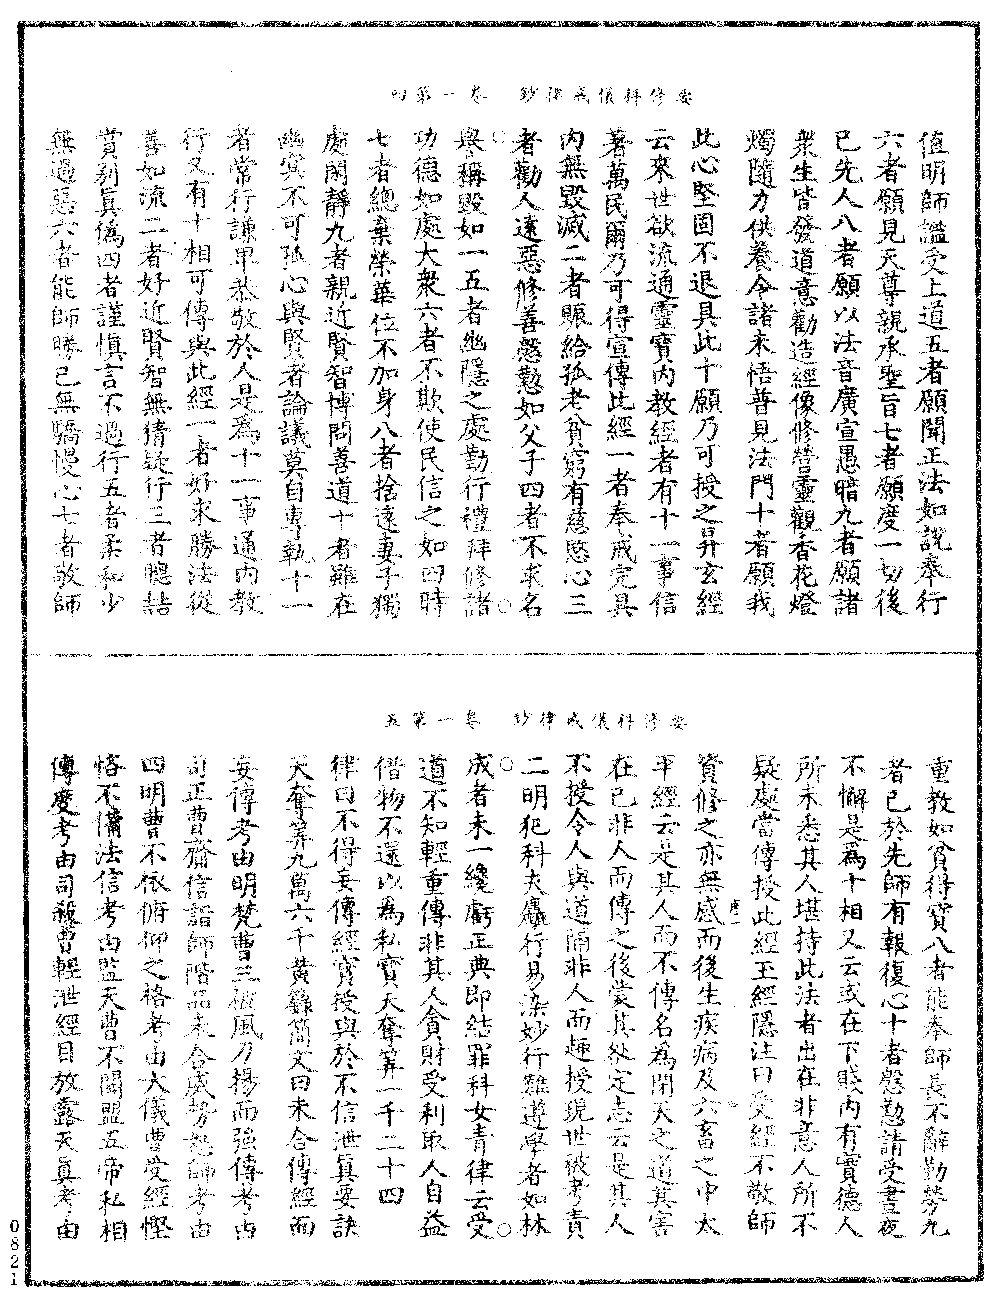 要修科儀戒律鈔　卷一第四
值明師諡受上道五者願聞正法如說奉行
六者願見天尊親承聖旨七者願度一切後
已先人八者願以法音廣宣愚暗九者願諸
衆生皆發道意勸造經像修營靈觀香花燈
燭隨力供養令諸未悟普見法門十者願我
此心堅固不退具此十願乃可授之昇玄經
云來世欲流通靈寶内教經者有十一事信
著萬民爾乃可得宣傳此經一者奉戒完具
内無毀滅二者賑給孤老貧窮有慈愍心三
者勸人遠惡修善慇懃如父子四者不求名
譽稱毀如一五者幽隱之處勤行禮拜修諸
功德如處大衆六者不欺使民信之如四時
七者總棄榮華位不加身八者捨遠妻子獨
處閑靜九者親近賢智博問善道十者雖在
幽冥不可孤心與賢者論議莫自專執十一
者常行謙卑恭敬於人是爲十一事通内教
行又有十相可傳與此經一者好求勝法從
善如流二者好近賢智無猜疑行三者聽詰
賞别眞僞四者謹慎言不過行五者柔和少
無過惡六者能師勝己無驕慢心七者敬師
要修科儀戒律鈔　卷一第五
重教如貧得寶八者能奉師長不辭勤勞九
者已於先師有報復心十者慇懃請受晝夜
不懈是爲十相又云或在下賤内有實德人
所未悉其人堪持此法者出在非意人所不
疑處當傳授此經玉經隱注曰受經不敬師
資修之亦無感而後生疾病及六畜之中太
平經云是其人而不傳名爲閉天之道其害
在已非人而傳之後蒙其殃定志云是其人
不授令人與道隔非人而趣授現世被考責
二明犯科夫麤行易染妙行難遵學者如林
成者未一纔虧正典即結罪科女青律云受
道不知輕重傳非其人貪財受利取人自益
借物不還以為私寶天奪筭一千二十四
律曰不得妄傳經寶授與於不信泄眞要訣
天奪筭九萬六千黃籙簡文曰未合傳經而
妄傳考由明梵曹三被風刀揚而強傳考由
司正曹齎信詣師階品未合威勢怒師考由
四明曹不依俯仰之格考由大儀曹受經慳
悋不備法信考由監天曹不關盟五帝私相
傳度考由司殺曹輕泄經目放露天眞考由
0821